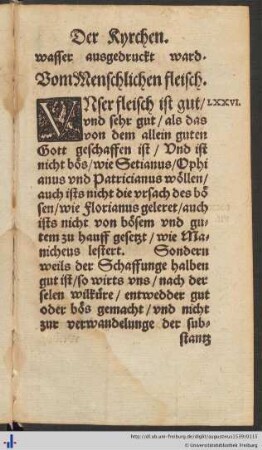 Der Kyrchen.
wasser ausgedruckt ward.
Vom Menschlichen fleisch.
VNser fleisch ist gut/ LXXVI.
vnd sehr gut/ als das
von dem allein guten
Gott geschaffen ist/ Vnd ist
nicht bös/ wie Setianus/ Ophi
anus vnd Patricianus wöllen/
auch ists nicht die vrsach des bö
sen/ wie Florianus geleret/ auch
ists nicht von bösem vnd gu-
tem zu hauff gesetzt/ wie Ma-
nicheus lestert. Sondern
weils der Schaffunge halben
gut ist/ so wirts vns/ nach der
selen wilküre/ entwedder gut
oder bös gemacht/ vnd nicht
zur verwandelunge der sub-
stantz
Universitätsbibliothek Freiburg